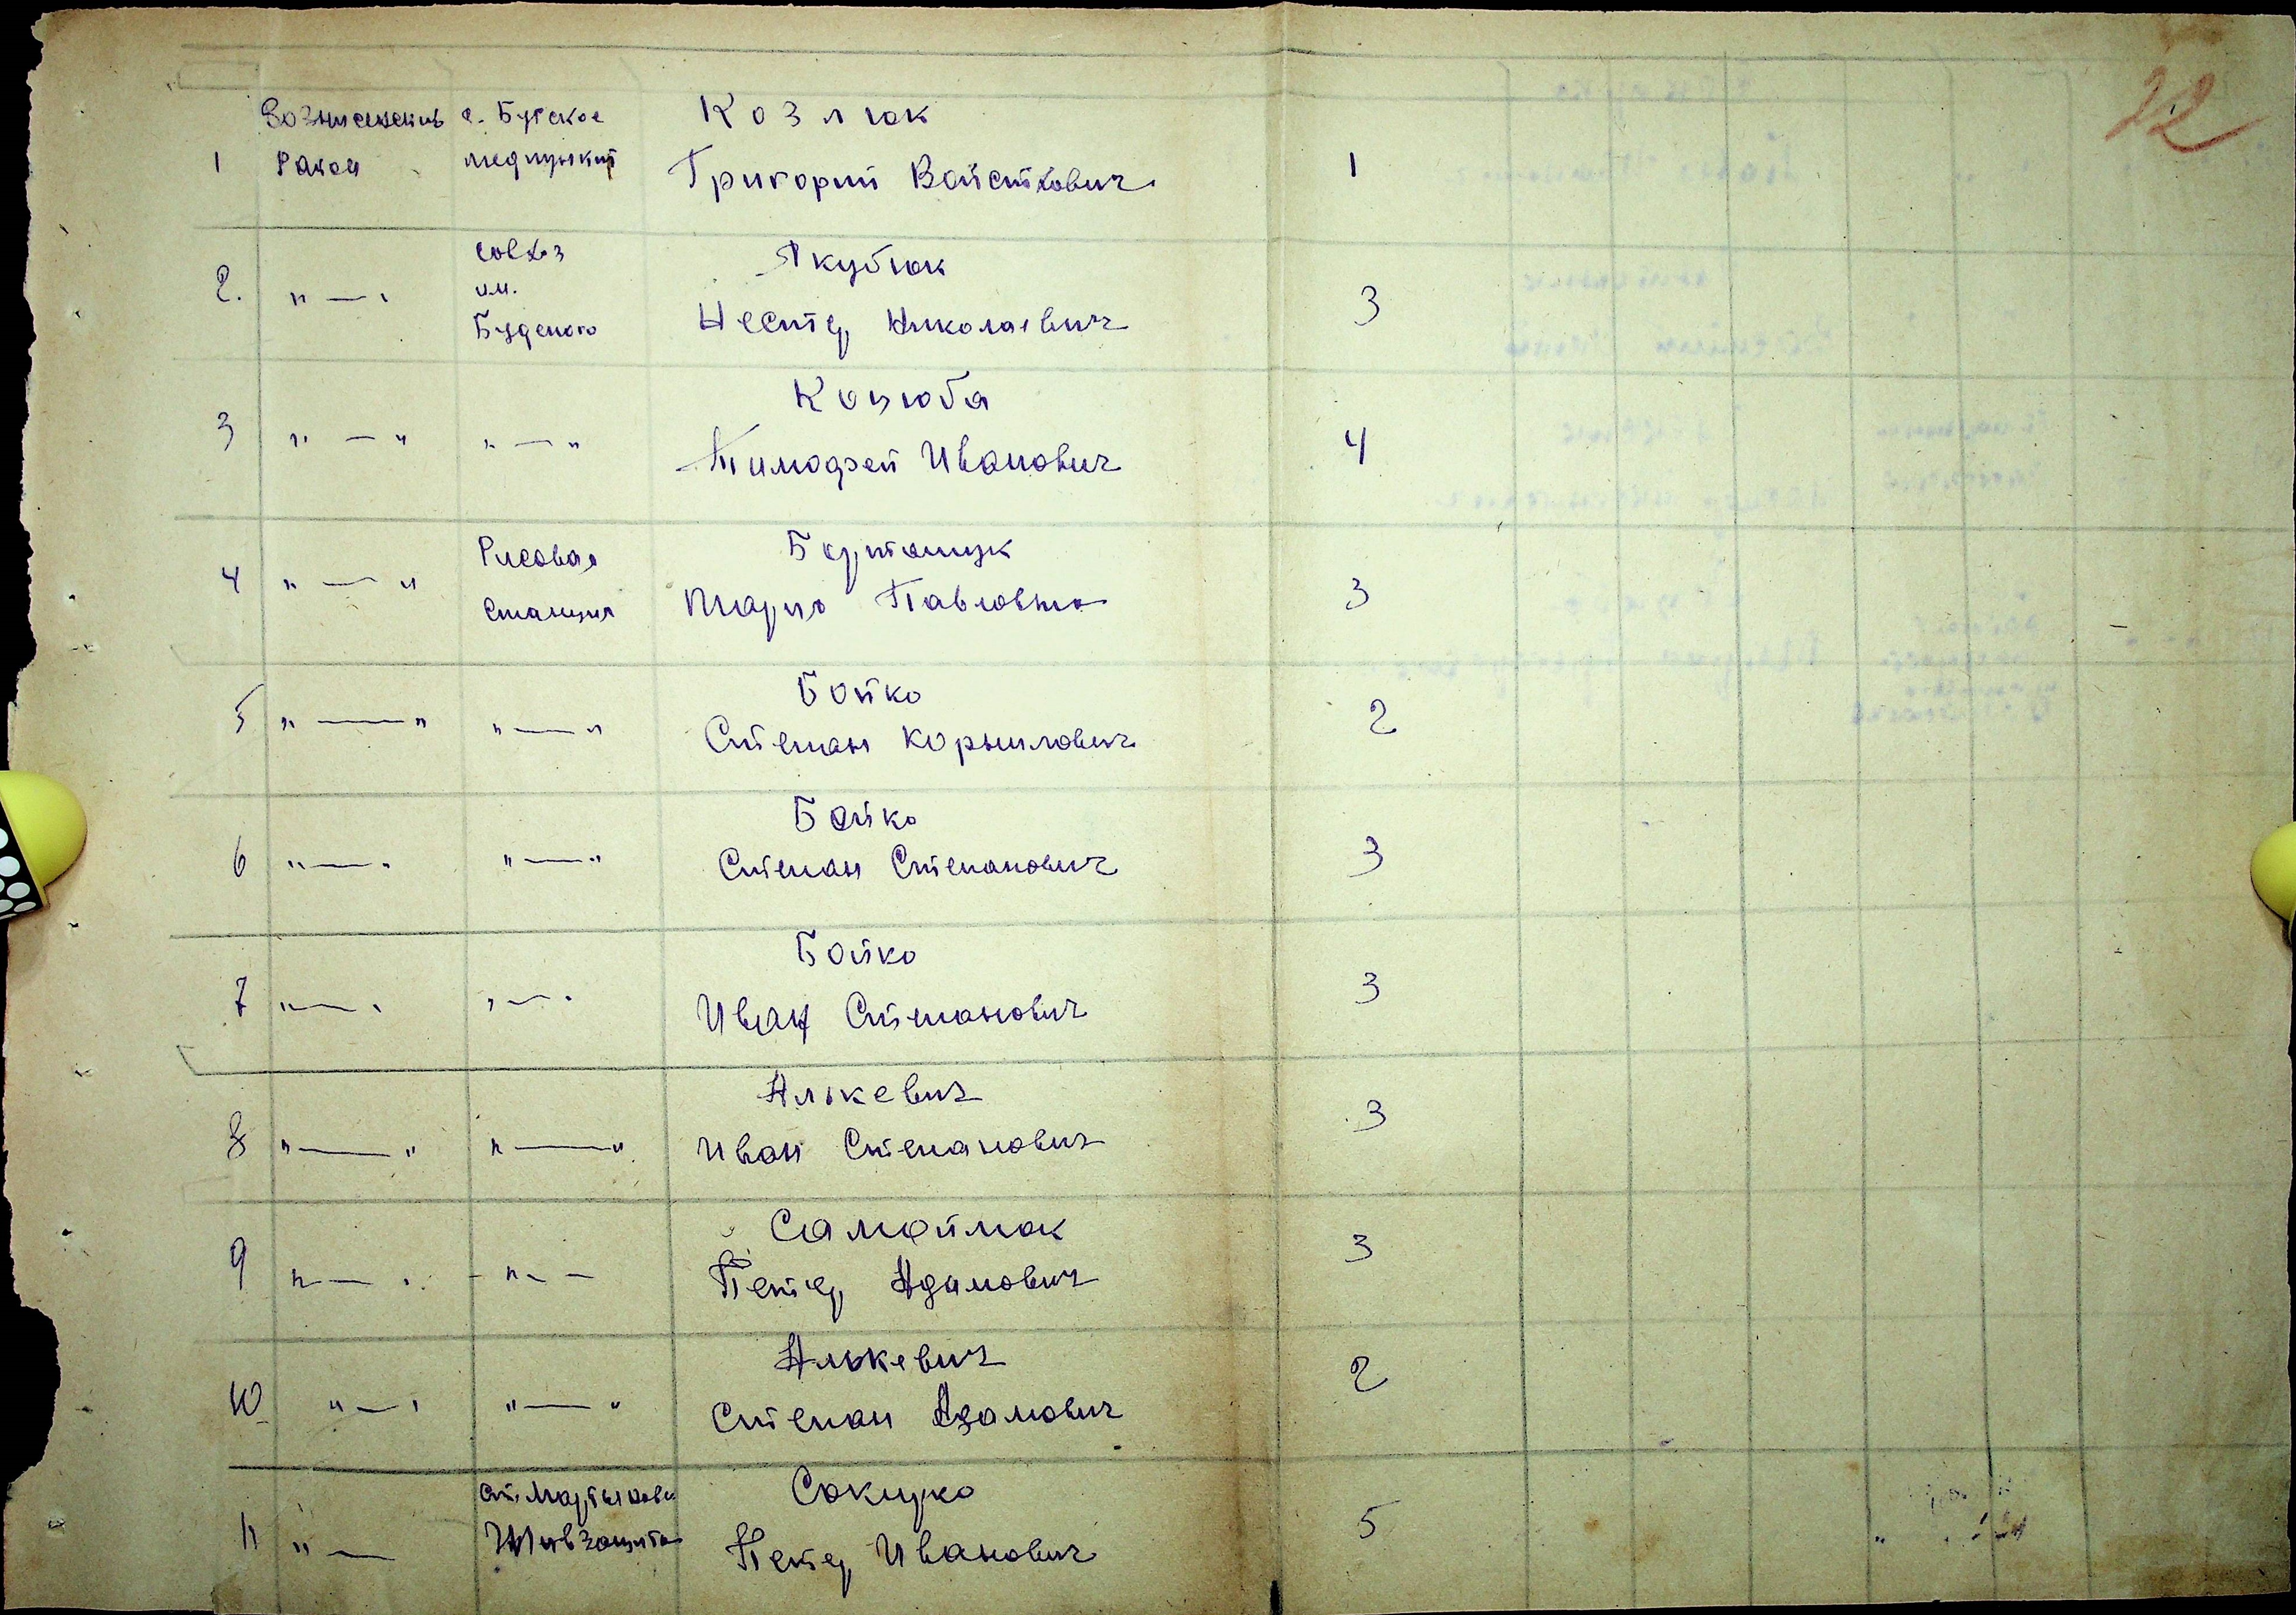 22
Вознесенский с. Бугское Козлюк
1 Район медпункт Григорий Войсткович 1
2. "—" совхоз Якубюк
им. Нестер Николаевич 3
Буденого
3 "—" "—" Коцюба
Тимофей Иванович 4
4 "—" Рисовая Бортощук
Станция Мария Павловна 3
5 "—" "—" Бойко
Степан Корнилович 2
6 "—" "—" Бойко
Степан Степанович 3
7 "—" "—" Бойко
Иван Степанович 3
8 "—" "—" Алькевич
Иван Степанович 3
9 "—" "—" Самойлюк
Петер Адамович 3
10 "—" "—" Алькевич
Степан Адамович 2
11 "— ст. Мартыновк Сокирко
Петер Иванович 5